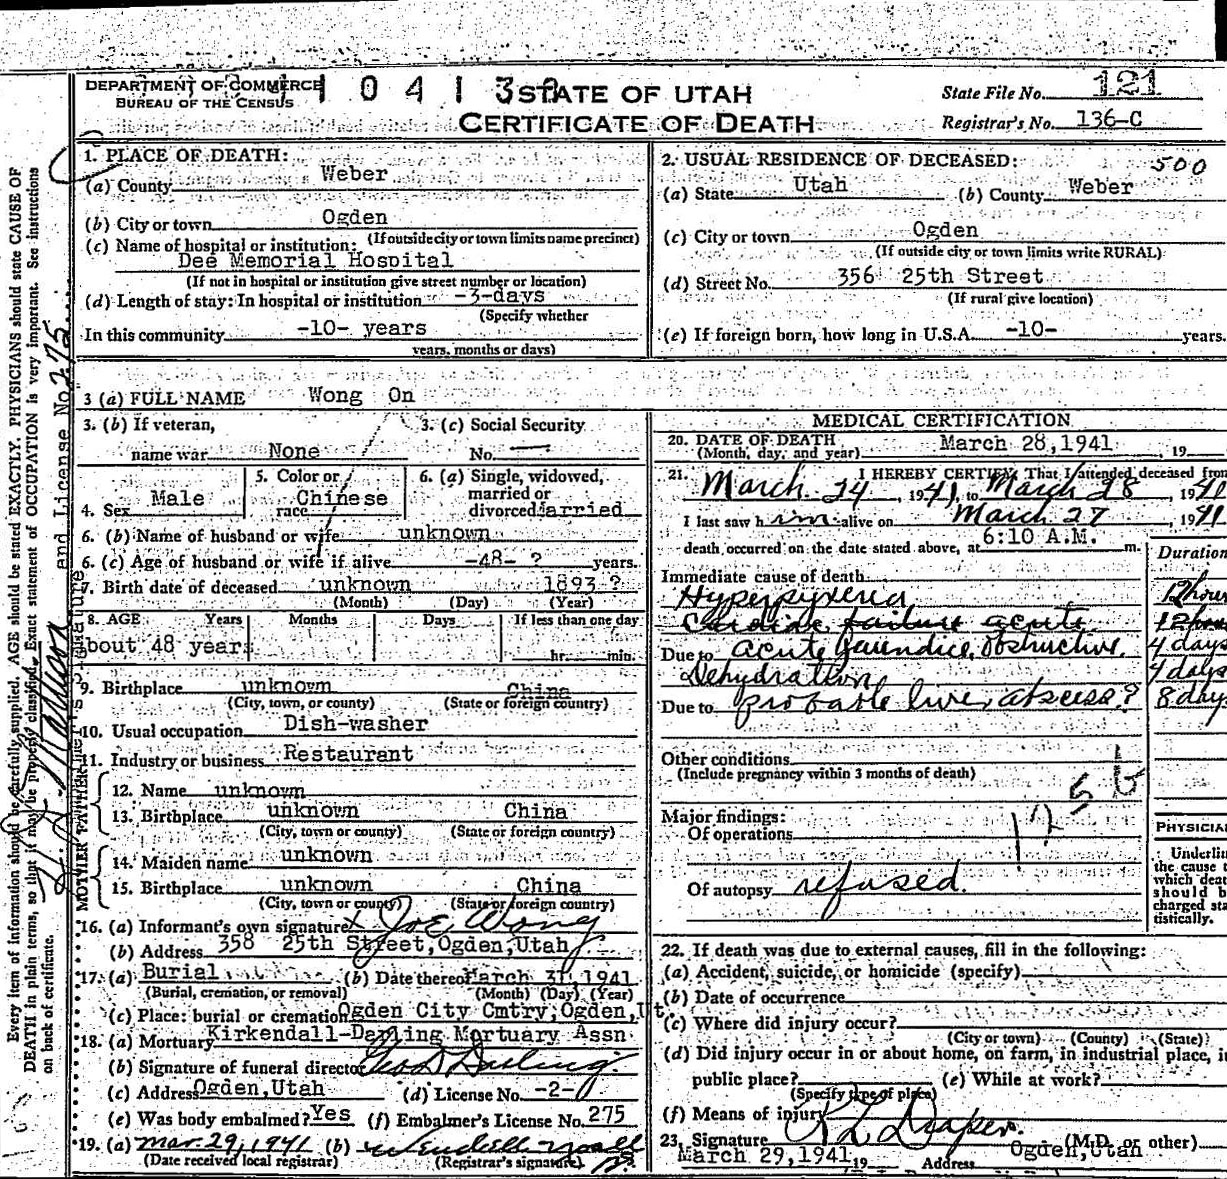 DEPARTMENT OF COMMERCE
BUREAU OF THE CENSUS
STATE OF UTAH
CERTIFICATE OF DEATH
State File No. 121
Registrar's No. 136-C
1. PLACE OF DEATH:
(a) County Weber
(b) City or town Ogden
(If outside city or town limits name precinct)
(c) Name of hospital or institution:
Dee Memorial Hospital
(If not in hospital or institution give street number or location)
(d) Length of stay: In hospital or institution -3-days
(Specify whether
In this community -10- years
years, months or days)
2. USUAL RESIDENCE OF DECEASED: 500
(a) State Utah (b) County Weber
(c) City or town Ogden
(If outside city or town limits write RURAL)
(d) Street No. 356 25th Street
(If rural give location)
(e) If foreign born, how long in U.S.A. -10- years.
3 (a) FULL NAME Wong On
3. (b) If veteran, 3. (c) Social Security
name war None No.
4. Sex Male
5. Color or race Chinese
6. (a) Single, widowed, married or divorced Married
6. (b) Name of husband or wife unknown
6. (c) Age of husband or wife if alive -48- ? years.
7. Birth date of deceased unknown 1893 ?
(Month) (Day) (Year)
8. AGE Years Months Days If less than one day
bout 48 years hr. min.
9. Birthplace unknown China
(City, town, or county) (State or foreign country)
10. Usual occupation Dish-washer
11. Industry or business Restaurant
FATHER
12. Name unknown
13. Birthplace unknown China
(City, town or county) (State or foreign country)
MOTHER
14. Maiden name unknown
15. Birthplace unknown China
(City, town or county) (State or foreign country)
16. (a) Informant's own signature x Joe Wong
(b) Address 358 25th Street, Ogden, Utah
17. (a) Burial (b) Date thereof March 31, 1941
(Burial, cremation, or removal) (Month) (Day) (Year)
(c) Place: burial or cremation Ogden City Cmtry, Ogden, Ut.
18. (a) Mortuary Kirkendall-Darling Mortuary Assn
(b) Signature of funeral director Geo D Darling
(c) Address Ogden, Utah (d) License No. -2-
(e) Was body embalmed? Yes (f) Embalmer's License No. 275
19. (a) Mar. 29, 1941 (b)
(Date received local registrar) (Registrar's signature)
MEDICAL CERTIFICATION
20. DATE OF DEATH March 28, 1941, 19
(Month, day, and year)
21. I HEREBY CERTIFY, That I attended deceased from
March 24, 1941, to March 28, 1941
I last saw him alive on March 27, 1941
death occurred on the date stated above, at 6:10 A.M. m.
Duration
Immediate cause of death
Hyperpyxera 12 hour
Cardiac failure acute 12 hour
Due to acute jaundice, obstructive. 4 days
Dehydration 4 days
Due to probable liver abscess? 8 day
Other conditions
(Include pregnancy within 3 months of death)
Major findings:
Of operations
Of autopsy refused.
PHYSICIA
Underlin
the cause t
which deat
should b
charged sta
tistically.
22. If death was due to external causes, fill in the following:
(a) Accident, suicide, or homicide (specify)
(b) Date of occurrence
(c) Where did injury occur?
(City or town) (County) (State)
(d) Did injury occur in or about home, on farm, in industrial place, i
public place? (e) While at work?
(Specify type of place)
(f) Means of injury
23. Signature Draper (M.D. or other)
March 29, 1941 19 Address Ogden, Utah
Every item of information should be carefully supplied. AGE should be stated EXACTLY. PHYSICIANS should state CAUSE OF
DEATH in plain terms, so that it may be properly classified. Exact statement of OCCUPATION is very important. See instructions
on back of certificate.
and License No. 275